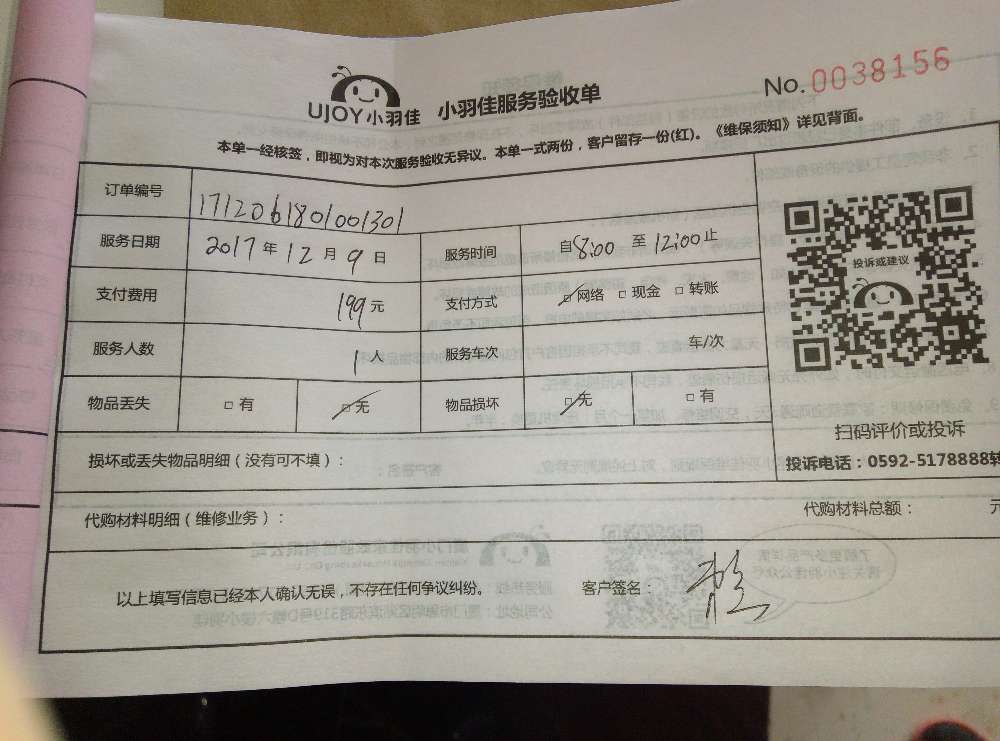 UJOY小羽佳 小羽佳服务验收单 No.0038156
本单一经核签，即视为对本次服务验收无异议。本单一式两份，客户留存一份(红)。《维保须知》详见背面。
订单编号 1712061801001301
服务日期 2017年12月9日 服务时间 自8:00 至12:00止
支付费用 199元 支付方式 □网络 □现金 □转账
服务人数 1人 服务车次 车/次
物品丢失 □有 □无 物品损坏 □无 □有
投诉或建议
扫码评价或投诉
投诉电话：0592-5178888转
损坏或丢失物品明细（没有可不填）：
代购材料明细（维修业务）： 代购材料总额： 元
以上填写信息已经本人确认无误，不存在任何争议纠纷。 客户签名：